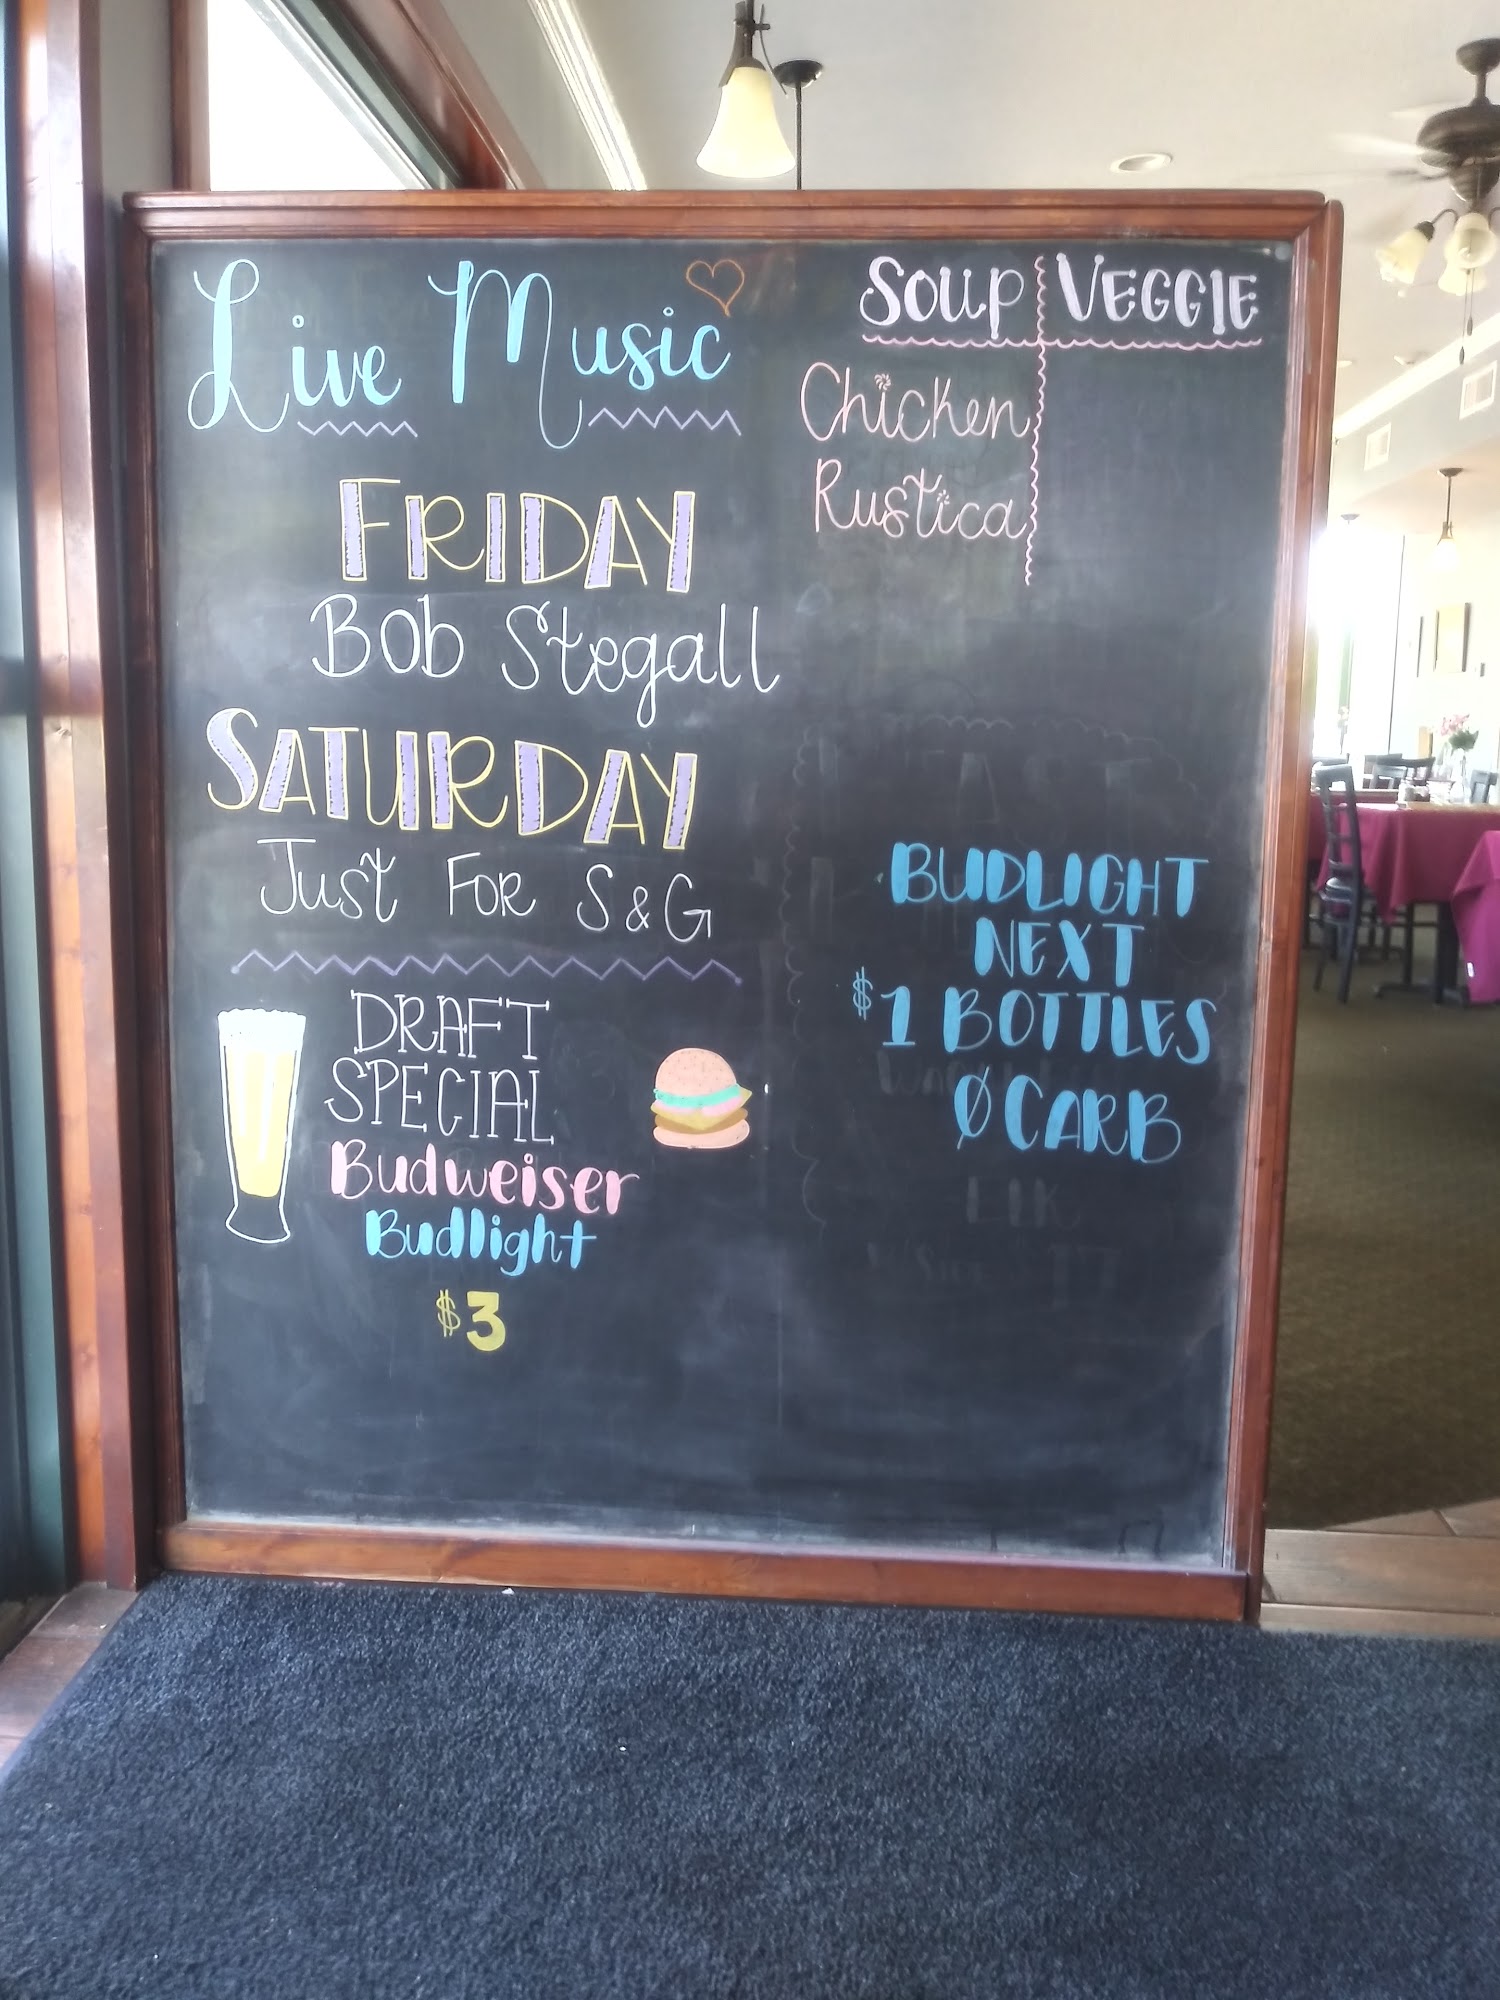 Live Music
FRIDAY
Bob Stegall
SATURDAY
Just For S & G
DRAFT
SPECIAL
Budweiser
Budlight
$3
SOUP VEGGIE
Chicken
Rustica
BUDLIGHT
NEXT
$1 BOTTLES
0 CARB